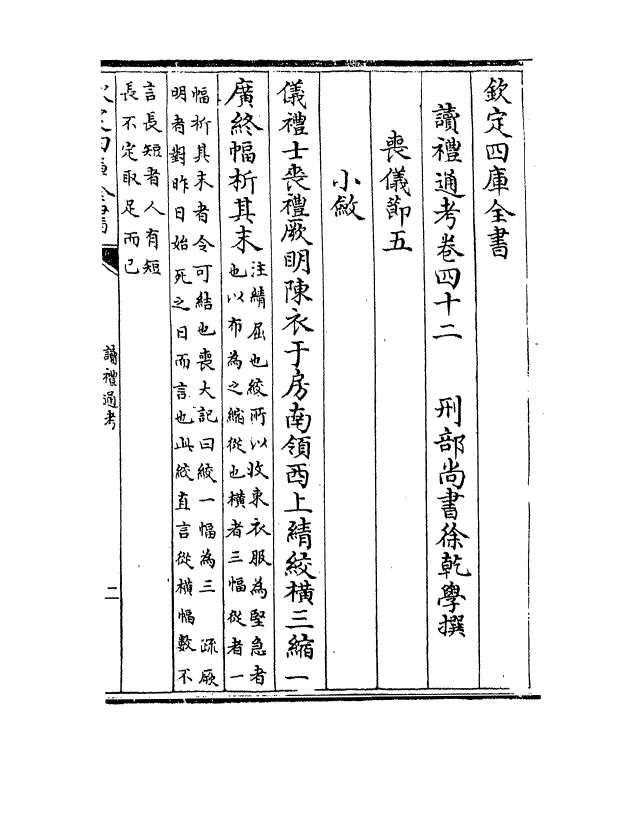 欽定四庫全書
讀禮通考卷四十二　刑部尚書徐乾學撰
喪儀節五
小斂
儀禮士喪禮厥明陳衣于房南領西上綪絞橫三縮一
廣終幅析其末
注綪屈也絞所以收束衣服為堅急者
也以布為之縮從也橫者三幅從者一
幅析其末者令可結也喪大記曰絞一幅為三　疏厥
明者對昨日始死之日而言也此絞直言從橫幅數不
言長短者人有短
長不定取足而已
欽定四庫全書
讀禮通考
二